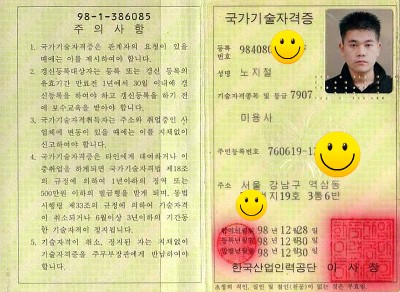 98-1-386085
주 의 사 항
1. 국가기술자격증은 관계자의 요청이 있을
때에는 이를 제시하여야 합니다.
2. 갱신등록대상자는 등록 또는 갱신 등록의
유효기간 만료전 1년에서 30일 이내에 갱
신등록을 하여야 하고 갱신등록을 하기 전
에 보수교육을 받아야 합니다.
3. 국가기술자격취득자는 주소와 취업중인 사
업체에 변동이 있을 때에는 이를 지체없이
신고하여야 합니다.
4. 국가기술자격증은 타인에게 대여하거나 이
중취업을 하게되면 국가기술자격법 제18조
의 규정에 의하여 1년이하의 징역 또는
500만원 이하의 벌금형을 받게 되며, 동법
시행령 제33조의 규정에 의하여 기술자격
이 취소되거나 6월이상 3년이하의 기간동
안 기술자격이 정지됩니다.
5. 기술자격이 취소, 정지된 자는 지체없이 기
술자격증을 주무부장관에게 반납하여야
합니다.
국가기술자격증
등록
번호 984080
성명 노지철
기술자격종목 및 등급 7907
미용사
주민등록번호 760619-1
주소 서울 강남구 역삼동
지19호 3통6반
98년 12월28일
98년 12월30일
98년 12월30일
한국산업인력공단 이사장